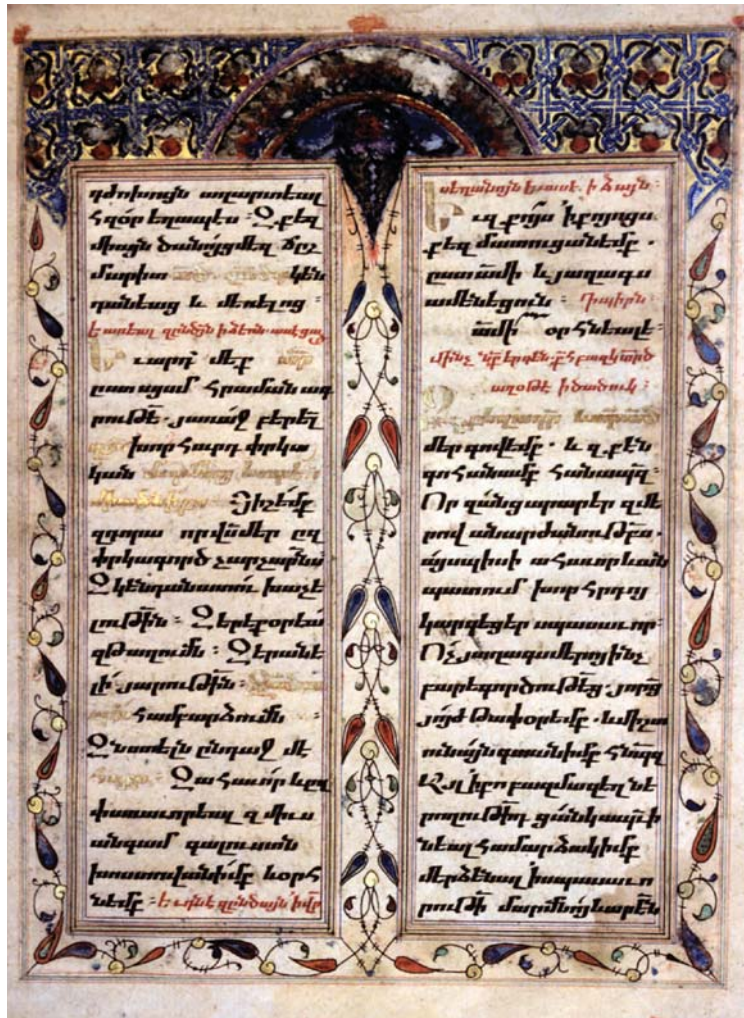 դժոխոցն աղարտեալ
հզօր եղապէս ։ Զքեզ
միայն ծանոյց մեզ ճշ
մարիտ կեն
դանեաց և մեռելոց ։
և առեալ զընծայն ի ձեռն
ւարդ մեք
ըստ այսմ հրամանագ
րութե՛ յառաջ բերել
խորհուրդ փրկա
կան
Յիշեմք
որ վն մեր ըզ
փրկագործ չարչարնս
Զկենդանատու խաչե
լութին ։ Զերեքօրեայ
զթաղումն ։ Զերանե
լի յարութին ։
համբարձումն ։
Զնստելն ընդ աջ
Զահաւոր և ըզ
փառաւորեալ զմիւս
անգամ գալուստն
խոստովանիմք և օրհ
նեմք ։
սեղանոյն և ասէ ի ձայն ։
ւզքոյս ի քոյոցս
քեզ մատուցանեմք ․
ըստ ամի և յաղագս
ամենեցուն ։ Դպիրն
ամի օրհնեալ է
մինչ նք երգեն քհ
աղօթէ ի ծածուկ ։
մեր գովեմք ․ և զքէն
գոհանամք հանապզ ։
Որ զանց արարեր զմե
րով անարժանութբս ․
այսպիսի ահաւոր և ան
պատում խորհրդոյ
կարգեցեր սպասաւոր ։
Ոչ յաղագս մերոյ ինչ
բարեգործութեց յորոց
յոյժ թափօրեմք ․ և միշտ
ունայն գտանիմք հնպզ
Այլ ի քո բազմազեղ նե
րողութիդ
նեալ համարձակիմք
մերձենալ ի սպասաւո
րութի մարմնոյ և արեն